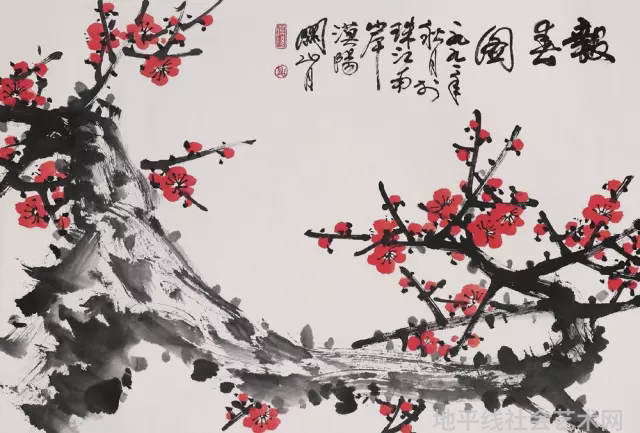 報春圖
一九九二年
秋月於
珠江南
岸
漠陽
關山月
地平线社会艺术网